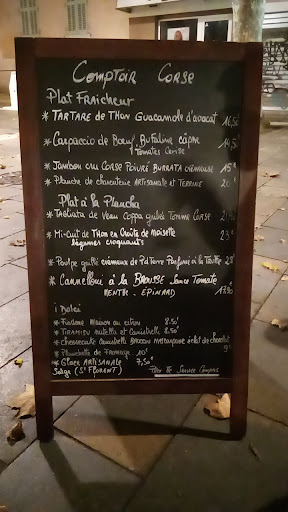 Comptoir Corse
Plat Fraicheur
* TARTARE de THON Guacamole d'avocat 16,50
* Carpaccio de Boeuf Bufalina câpre 14,50
tomates Cerise
* Jambon cru CORSE Poivré BURRATA crémeuse 15€
* Planche de charcuterie ARTISANALE et TERRINE 20
Plat à la Plancha
* Tagliata de Veau Coppa grillée Tomme CORSE
* Mi-cuit de THON en Croûte de Noisette 23,€
légumes croquants
* Poulpe grillé crémeux de Pd Terre Parfumé à la Truffe
* CANNELLONI à la BROUSSE Sauce Tomate
MENTHE - EPINARD 17,90
i Dolci
* Fiadone Maison au citron 8.50
* TIRAMISU nutella et Canistrelli 8.50
* cheesecake Canistrelli BROCCIU MASCARPONE éclat de chocolat
9
* Planchette de Fromage 10€
* GLACE ARTISANALE 7,50€
Salge (St FLORENT) Prix TTC Service Compris